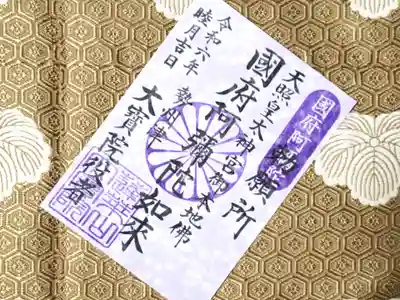 勅願所
天照皇太神宮御本地佛
國府阿彌陀如来
令和六年
睦月吉日
勢州津
大寶院役者
國府阿